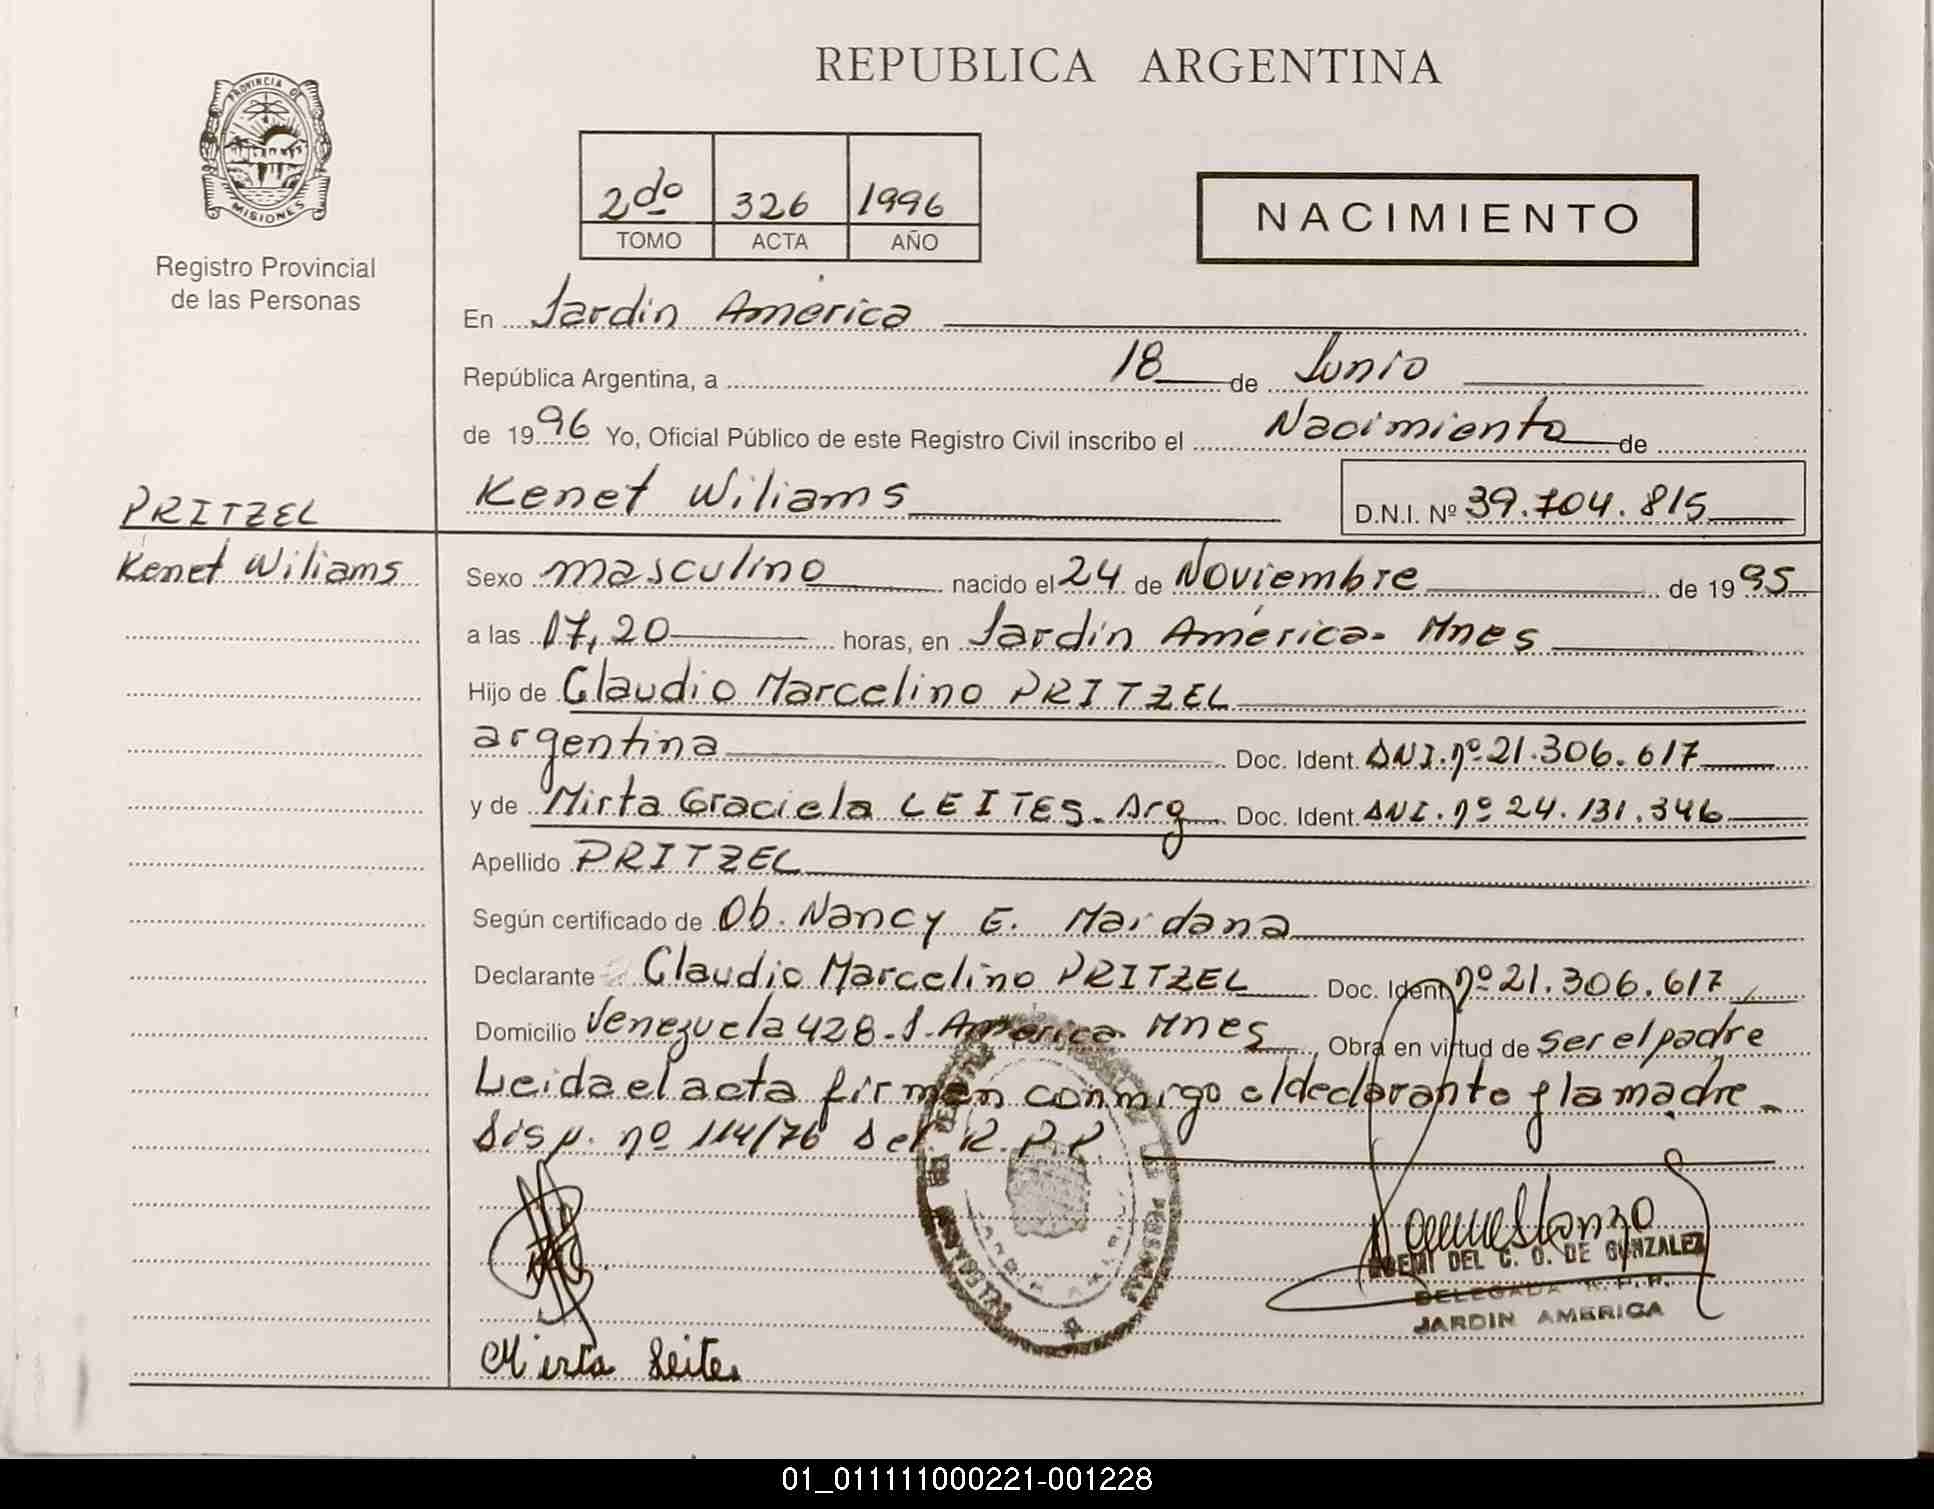 REPUBLICA ARGENTINA
PROVINCIA DE
MISIONES
Registro Provincial
de las Personas
2do 326 1996
TOMO ACTA AÑO
NACIMIENTO
En Jardin América
República Argentina, a 18 de Junio
de 1996 Yo, Oficial Público de este Registro Civil inscribo el Nacimiento de
Kenet Wiliams D.N.I. Nº 39.704.815
PRITZEL
Kenet Wiliams
Sexo masculino nacido el 24 de Noviembre de 1995
a las 17,20 horas, en Jardin América- Mnes
Hijo de Claudio Marcelino PRITZEL
argentina Doc. Ident. DNI. nº 21.306.617
y de Mirta Graciela LEITES. Arg Doc. Ident. DNI. nº 24.131.346
Apellido PRITZEL
Según certificado de Ob. Nancy E. Maidana
Declarante Claudio Marcelino PRITZEL Doc. Ident. nº 21.306.617
Domicilio Venezuela 428-J. América- Mnes, Obra en virtud de ser el padre
Leida el acta firman conmigo el declarante y la madre-
Disp. nº 114/76 del R.P.P.
NOEMI DEL C. O. DE GONZALEZ
DELEGADA R.P.P.
JARDIN AMERICA
Mirta Leites
01_011111000221-001228